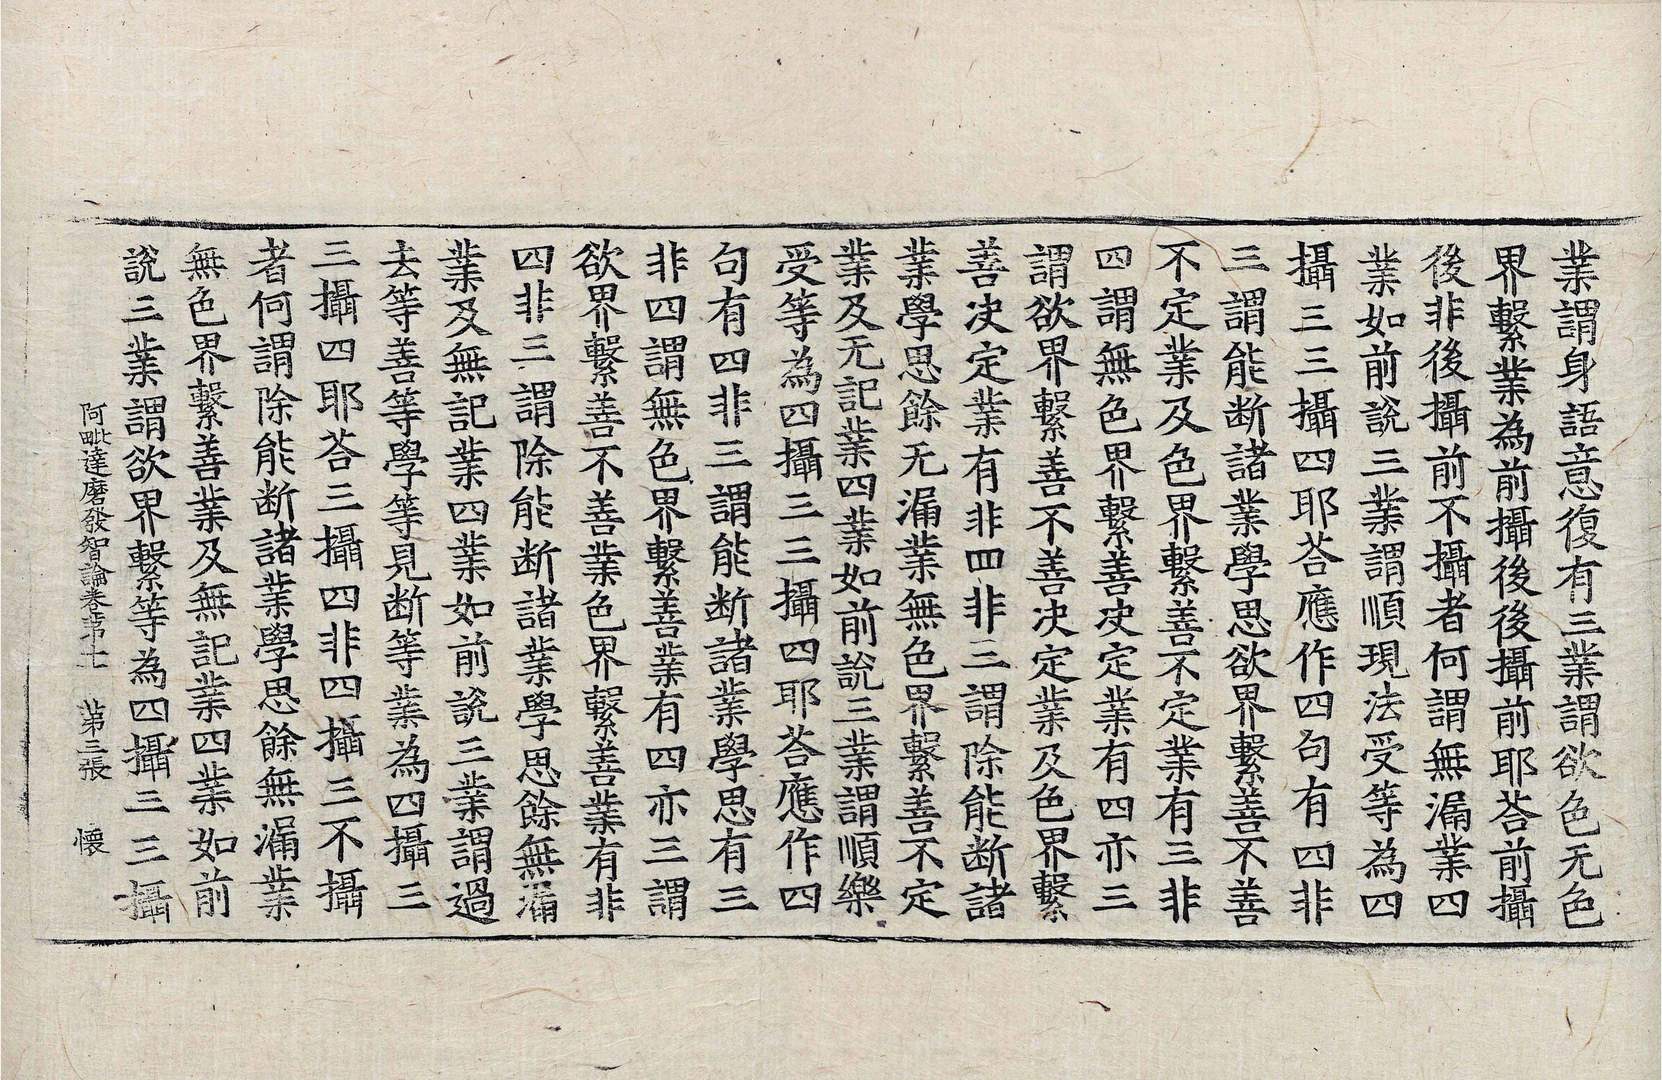 業謂身語意復有三業謂欲色无色
界繫業為前攝後後攝前耶荅前攝
後非後攝前不攝者何謂無漏業四
業如前說三業謂順現法受等為四
攝三三攝四耶荅應作四句有四非
三謂能断諸業學思欲界繫善不善
不定業及色界繫善不定業有三非
四謂無色界繫善决定業有四亦三
謂欲界繫善不善决定業及色界繫
善决定業有非四非三謂除能断諸
業學思餘无漏業無色界繫善不定
業及无記業四業如前說三業謂順樂
受等為四攝三三攝四耶荅應作四
句有四非三謂能断諸業學思有三
非四謂無色界繫善業有四亦三謂
欲界繫善不善業色界繫善業有非
四非三謂除能断諸業學思餘無漏
業及無記業四業如前說三業謂過
去等善等學等見断等業為四攝三
三攝四耶荅三攝四非四攝三不攝
者何謂除能断諸業學思餘無漏業
無色界繫善業及無記業四業如前
說三業謂欲界繫等為四攝三三攝
阿毗達磨發智論卷苐十一 苐三張 懷